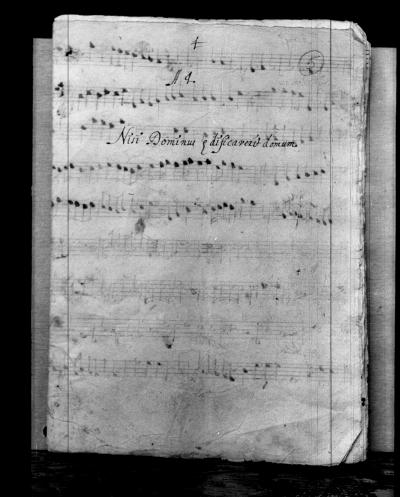 5
A 4.
Nisi Dominus edificaverit domum